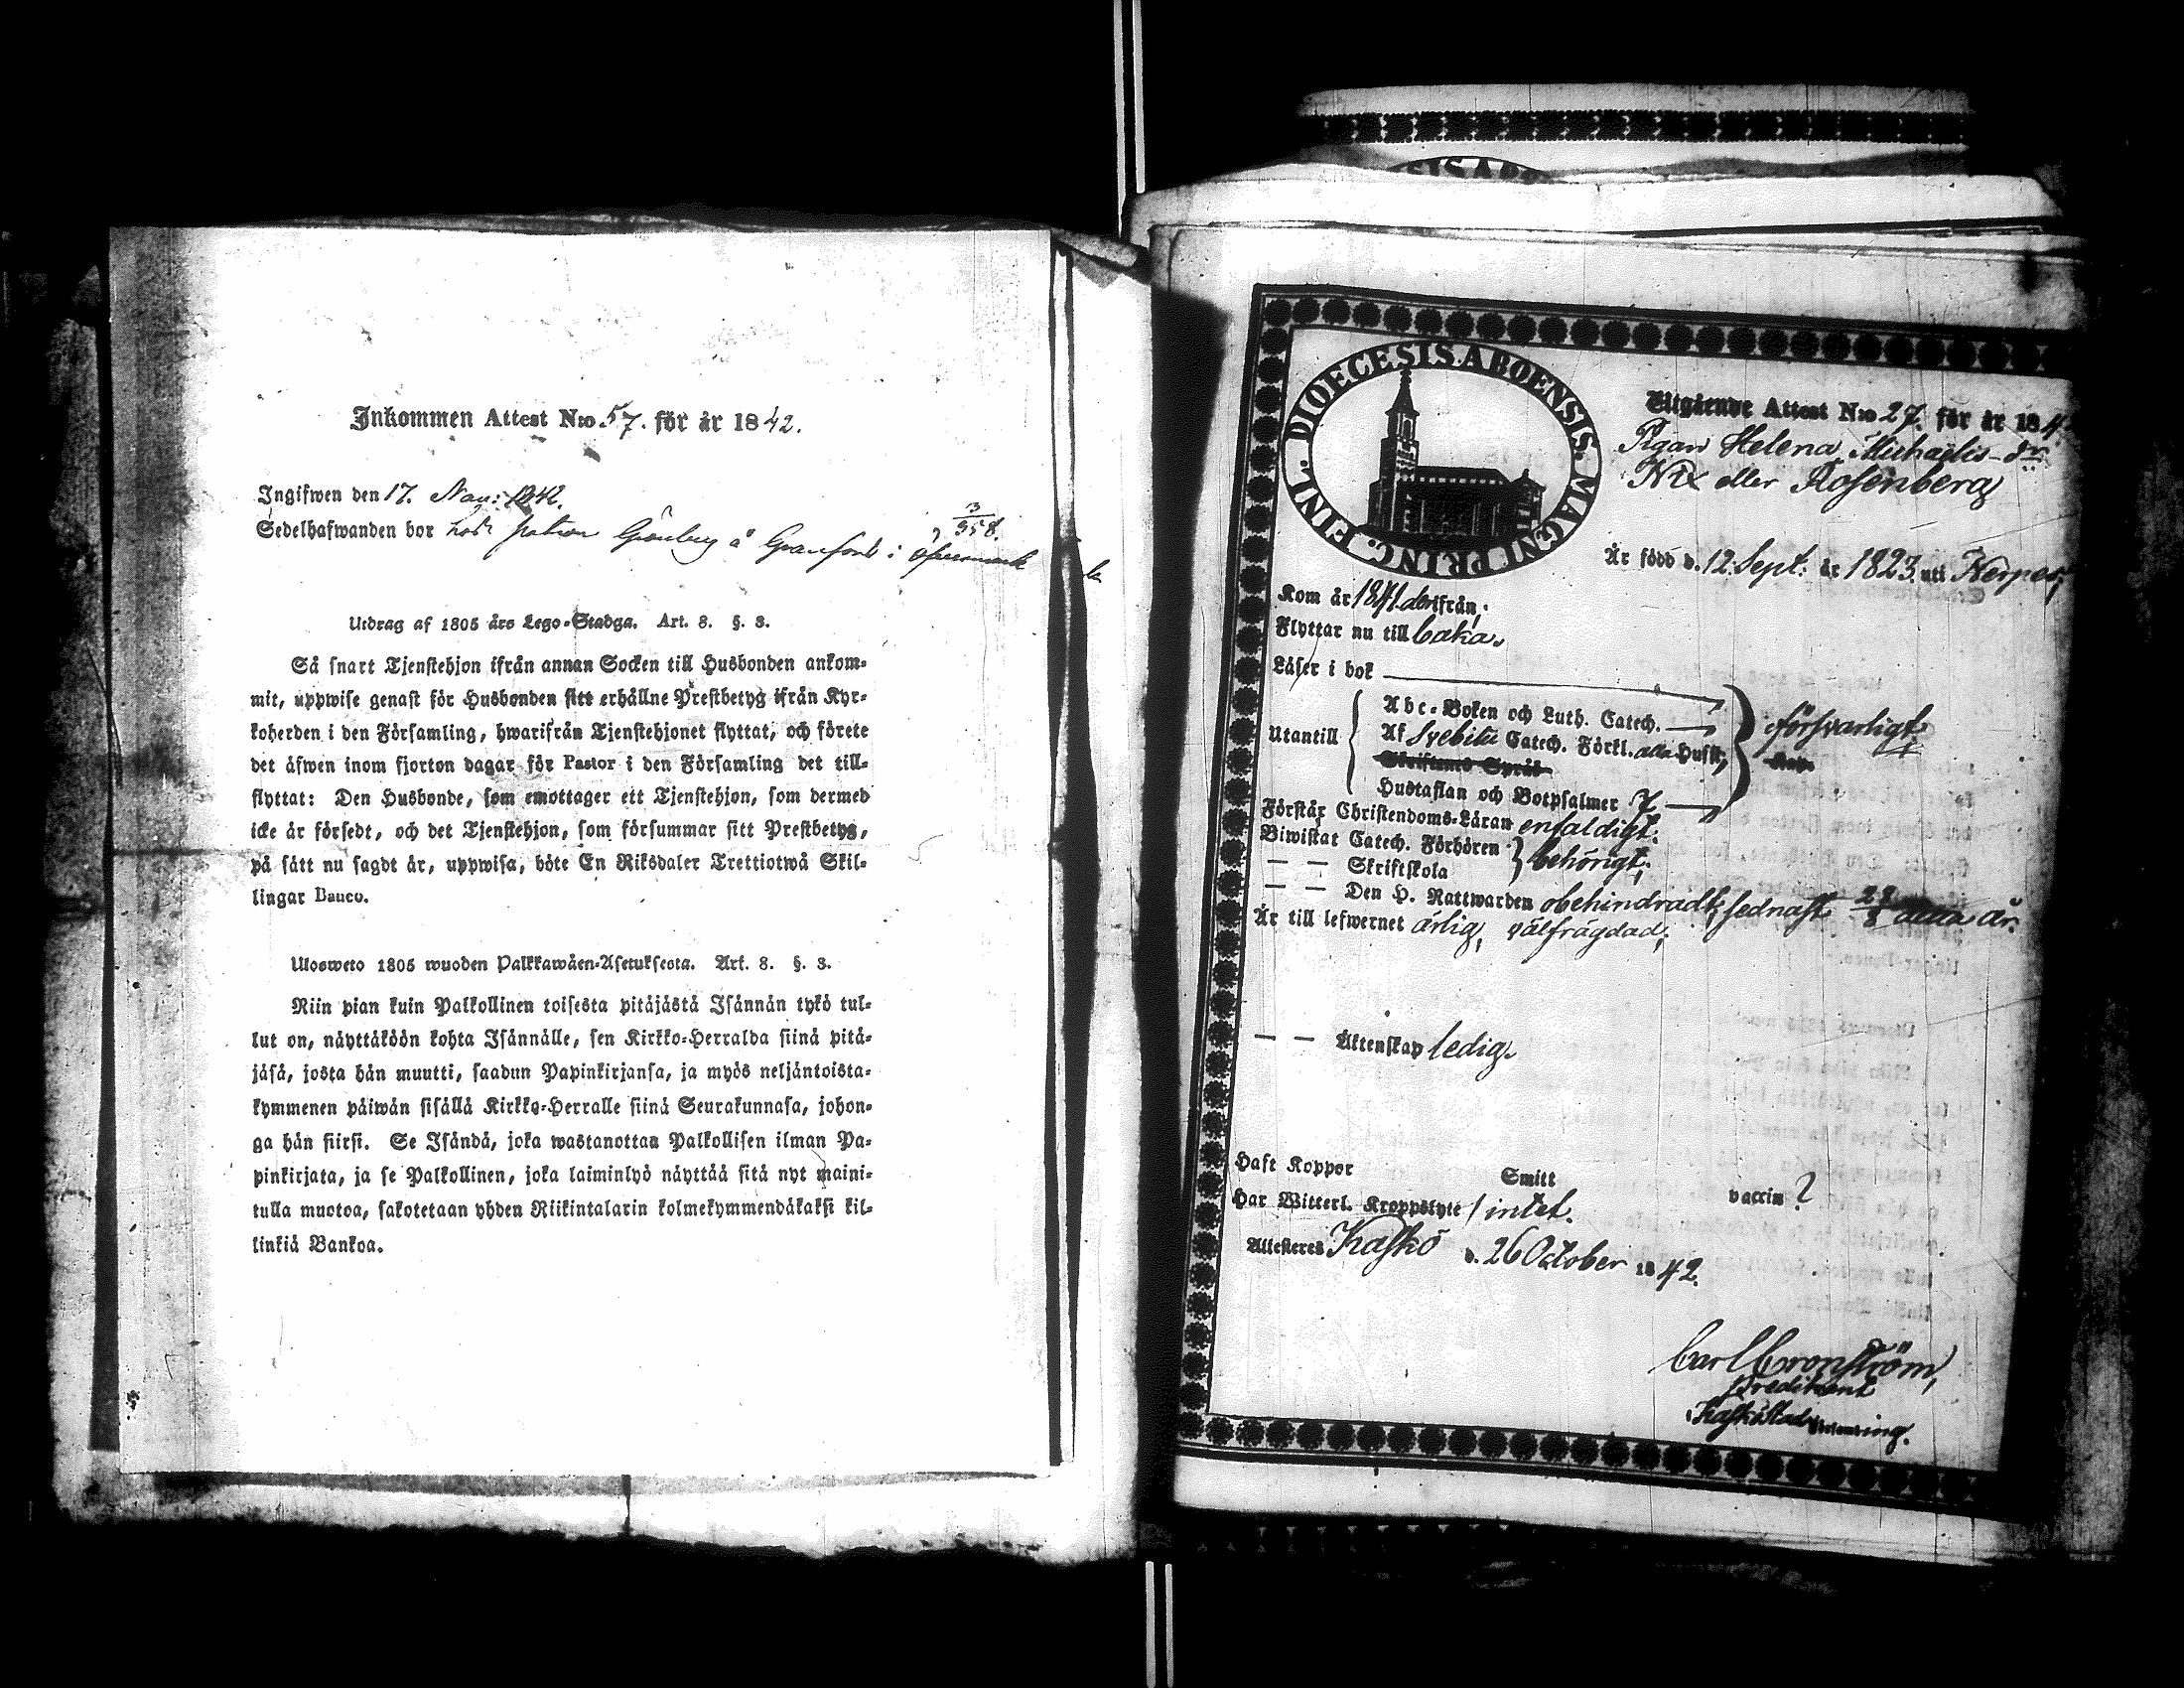 Inkommen Attest N:o 57. för år 1842.
Ingifwen den 17. Nov: 1842.
Sedelhafwanden bor hos patron Grönberg å Granfors i Öfvermark
3
958.
Utdrag af 1805 års Lego-Stadga. Art. 8. §. 3.
Så snart Tjenstehjon ifrån annan Socken till Husbonden ankom-
mit, uppwise genast för Husbonden sitt erhållne Prestbetyg ifrån Kyr-
koherden i den Församling, hwarifrån Tjenstehjonet flyttat, och förete
det äfwen inom fjorton dagar för Pastor i den Församling det till-
flyttat: Den Husbonde, som emottager ett Tjenstehjon, som dermed
icke är försedt, och det Tjenstehjon, som försummar sitt Prestbetyg,
på sätt nu sagdt är, uppwisa, böte En Riksdaler Trettiotwå Skil-
lingar Banco.
Ulosweto 1805 wuoden Palkkawäen-Asetuksesta. Art. 8. §. 3.
Niin pian kuin Palkollinen toisesta pitäjästä Isännän tykö tul-
lut on, näyttäköön kohta Isännälle, sen Kirkko-Herralda siinä pitä-
jäsä, josta hän muutti, saadun Papinkirjansa, ja myös neljäntoista-
kymmenen päiwän sisällä Kirkko-Herralle siinä Seurakunnasa, johon-
ga hän siirsi. Se Isändä, joka wastanottaa Palkollisen ilman Pa-
pinkirjata, ja se Palkollinen, joka laiminlyö näyttää sitä nyt maini-
tulla muotoa, sakotetaan yhden Riikintalarin kolmekymmendäkaksi kil-
linkiä Bankoa.
DIOECESIS ABOENSIS. MAGNI PRINC. FINL.
Utgående Attest N:o 27. för år 184
Pigan Helena Michaëlis-dr
Nix eller Rosenberg
Är född d. 12. Sept. år 1823. uti Nerpes,
Kom år 1841. derifrån;
Flyttar nu till baka.
Läser i bok
Utantill
Abc-Boken och Luth. Catech.
Af Svebilii Catech. Förkl. alla Hufst,
Skriftens Språk
Hustaflan och Botpsalmer 7
försvarligt,
Förstår Christendoms-Läran enfaldigt.
Biwistat Catech. Förhören
— — Skriftskola
behörigt,
— — Den H. Nattwarden obehindradt, sednast 28/8 detta år.
Är till lefwernet ärlig, välfrägdad;
— — Äktenskap ledig.
Haft Koppor Smitt vaccin ?
Har Witterl. Kroppslyte / intet.
Attesteres Kaskö d. 26 October 1842.
Carl Cronström,
predikant
Kaskö Stads Församling.